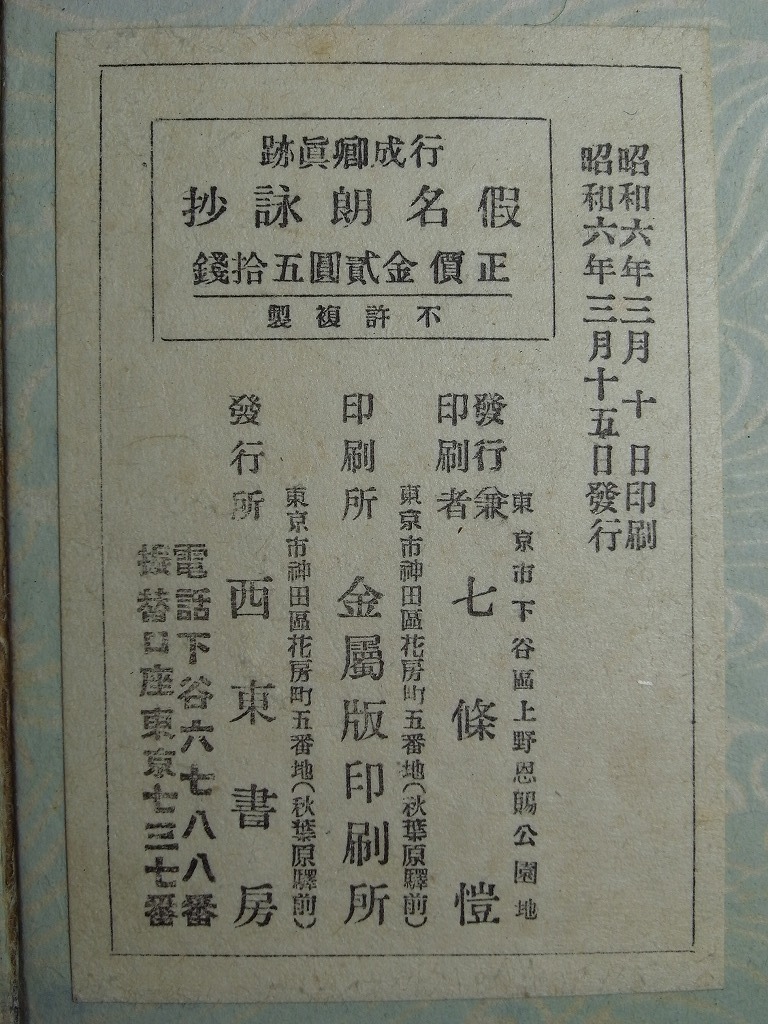 昭和六年三月十日印刷
昭和六年三月十五日發行
行成卿眞跡
假名朗詠抄
正價金貳圓五拾錢
不許複製
東京市下谷區上野恩賜公園地
發行兼
印刷者
七條愷
東京市神田區花房町五番地(秋葉原驛前)
印刷所 金屬版印刷所
東京市神田區花房町五番地(秋葉原驛前)
發行所 西東書房
電話下谷六七八八番
振替口座東京七三七番